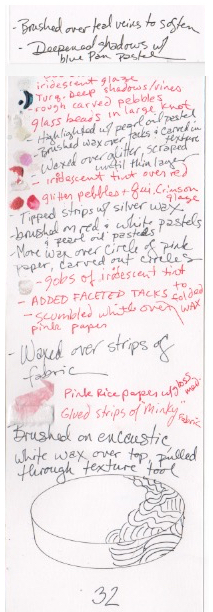 - Brushed over teal veins to soften
- Deepened shadows w/
blue Pan Pastel
iridescent glaze
Turq. deep shadows/vines
rough carved pebbles
glass beads in large knot
- Highlighted w/ pearl oil pastel
- Brushed wax over rocks & carved in texture
- Waxed over glitter, scraped
until thin layer
- iridescent tint over red
glitter pebbles + Qui. Crimson glaze
- Tipped strips w/ silver wax
- brushed on red & white pastels
& pearl oil pastels
- More wax over circle of pink
paper, carved out circles
- gobs of iridescent tint
- ADDED FACETED TACKS to
- scumbled white over wax
pink paper
- Waxed over strips of
fabric
Pink Rice paper w/ gloss med.
Glued strips of Minky Fabric
Brushed on encaustic
white wax over top, pulled
through texture tool
32